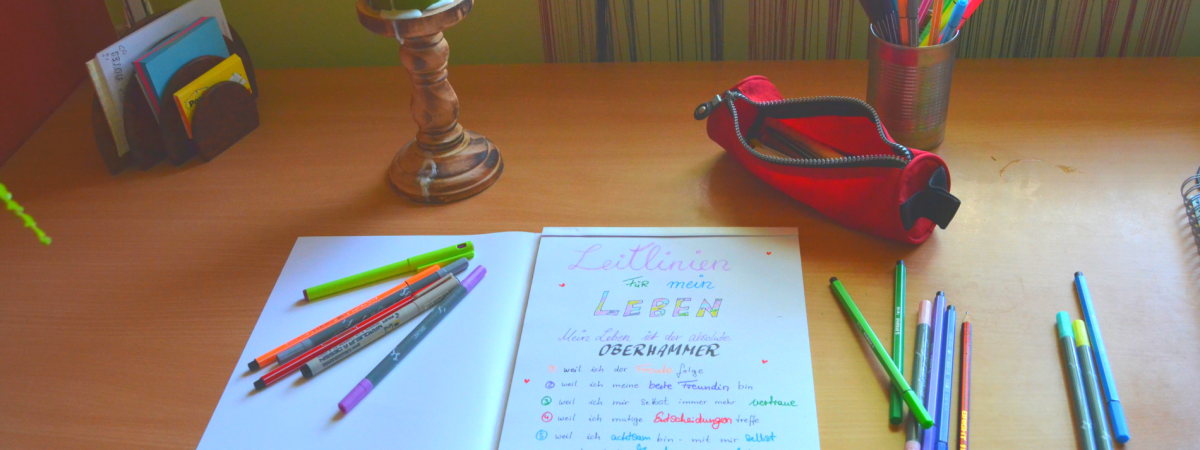 Leitlinien
FÜR mein
LEBEN
Mein Leben ist der absolute
OBERHAMMER
1 weil ich der Freude folge
2 weil ich meine beste Freundin bin
3 weil ich mir selbst immer mehr vertraue
4 weil ich mutige Entscheidungen treffe
5 weil ich achtsam bin - mit mir selbst